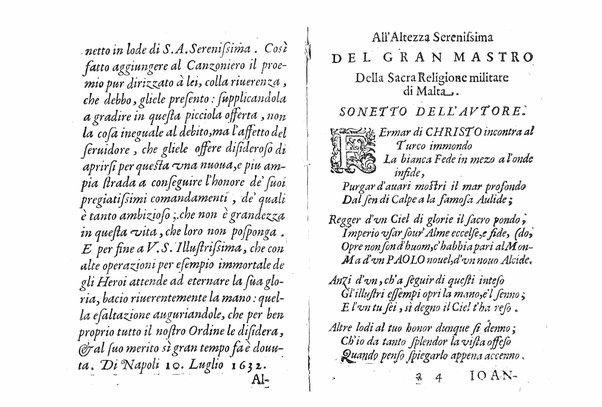 netto in lode di S. A. Serenissima. Così
fatto aggiungere al Canzoniero il proe-
mio pur dirizzato à lei, colla riuerenza,
che debbo, gliele presento: supplicandola
a gradire in questa picciola offerta, non
la cosa ineguale al debito, ma l'affetto del
seruidore, che gliele offere disideroso di
aprirsi per questa vna nuoua, e piu am-
pia strada a conseguire l'honore de' suoi
pregiatissimi comandamenti, de' quali
è tanto ambizioso; che non è grandezza
in questa vita, che loro non posponga.
E per fine a V. S. Illustrissima, che con
alte operazioni per esempio immortale de
gli Heroi attende ad eternare la sua glo-
ria, bacio riuerentemente la mano: quel-
la esaltazione auguriandole, che per ben
proprio tutto il nostro Ordine le disidera,
& al suo merito sì gran tempo fa è douu-
ta. Di Napoli 10. Luglio 1632.
Al-
All'Altezza Serenissima
DEL GRAN MASTRO
Della Sacra Religione militare
di Malta.
SONETTO DELL'AVTORE.
FErmar di CHRISTO incontra al
Turco immondo
La bianca Fede in mezo a l'onde
infide,
Purgar d'auari mostri il mar profondo
Dal sen di Calpe a la famosa Aulide;
Regger d'vn Ciel di glorie il sacro pondo;
Imperio vsar sour'Alme eccelse, e fide, (do;
Opre non son d'huom, c'habbia pari al Mon-
Ma d'vn PAOLO nouel, d'vn nouo Alcide.
Anzi d'vn, ch'a seguir di questi inteso
Gl'illustri essempi opri la mano, e'l senno;
E l'vn tu sei, sì degno il Ciel t'ha reso.
Altre lodi al tuo honor dunque si denno;
Ch'io da tanto splendor la vista offeso
Quando penso spiegarlo appena accenno.
a 4 IOAN-